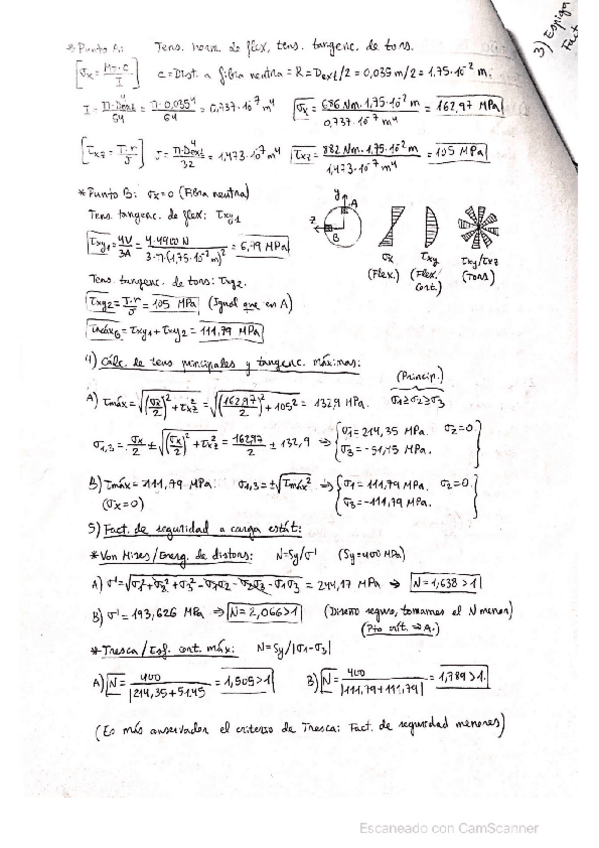 3) Espiga
Fact
* Punto A: Tens. norm. de flex, tens. tangenc. de tors.
[σx = Mz·c / I] c = Dist. a fibra neutra = R = Dext/2 = 0,035 m/2 = 1,75·10⁻² m.
I = π·Dext⁴/64 = π·0,035⁴/64 = 0,737·10⁻⁷ m⁴ σx = 686 Nm·1,75·10⁻² m / 0,737·10⁻⁷ m⁴ = 162,97 MPa
[τxz = T·r/J] J = π·Dext⁴/32 = 1,473·10⁻⁷ m⁴ τxz = 882 Nm·1,75·10⁻² m / 1,473·10⁻⁷ m⁴ = 105 MPa
* Punto B: σx = 0 (Fibra neutra)
Tens. tangenc. de flex: τxy1
τxy1 = 4V/3A = 4·4900 N / 3·π·(1,75·10⁻² m)² = 6,79 MPa
y z A B
σx τxy τxy/τxz
(Flex.) (Flex./Cort.) (Tors)
Tens. tangenc. de tors: τxy2.
τxy2 = T·r/J = 105 MPa (Igual que en A)
τmáxB = τxy1 + τxy2 = 111,79 MPa
4) Cálc. de tens principales y tangenc. máximas:
(Princip.)
σ1≥σ2≥σ3
A) τmáx = √((σx/2)² + τxz²) = √((162,97/2)² + 105²) = 132,9 MPa.
σ1,3 = σx/2 ± √((σx/2)² + τxz²) = 162,97/2 ± 132,9 ⇒ {σ1 = 214,35 MPa. σ2 = 0
σ3 = -51,45 MPa.}
B) τmáx = 111,79 MPa: σ1,3 = ±√τmáx² ⇒ {σ1 = 111,79 MPa. σ2 = 0.
(σx = 0) σ3 = -111,79 MPa.}
5) Fact. de seguridad a carga estát:
* Von Mises/Energ. de distors: N = Sy/σ' (Sy = 400 MPa)
A) σ' = √(σ1² + σ2² + σ3² - σ1σ2 - σ2σ3 - σ1σ3) = 244,17 MPa ⇒ N = 1,638 > 1
B) σ' = 193,626 MPa ⇒ N = 2,066 > 1 (Diseño seguro, tomamos el N menor)
(Pto crít. ⇒ A.)
* Tresca/Esf. cort. máx: N = Sy/|σ1-σ3|
A) N = 400 / |214,35+51,45| = 1,505 > 1 B) N = 400 / |111,79+111,79| = 1,789 > 1.
(Es más conservador el criterio de Tresca: Fact. de seguridad menores)
Escaneado con CamScanner